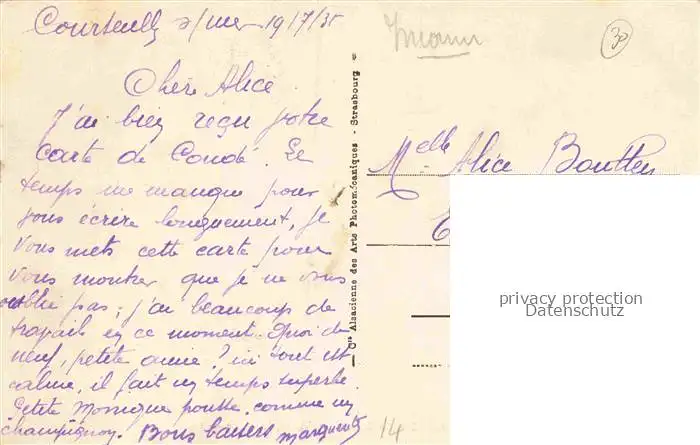 Courseulles s/mer 19/7/35
Chère Alice
J'ai bien reçu votre
carte de Condé. Le
temps me manque pour
vous écrire longuement, je
vous mets cette carte pour
vous montrer que je ne vous
oublie pas ; j'ai beaucoup de
travail en ce moment. Quoi de
neuf, petite amie ? ici tout est
calme, il fait un temps superbe.
Petite Monique pousse comme un
champignon. Bons baisers Marguerite
Cie Alsacienne des Arts Photomécaniques - Strasbourg
30
Melle Alice
privacy protection
Datenschutz
14